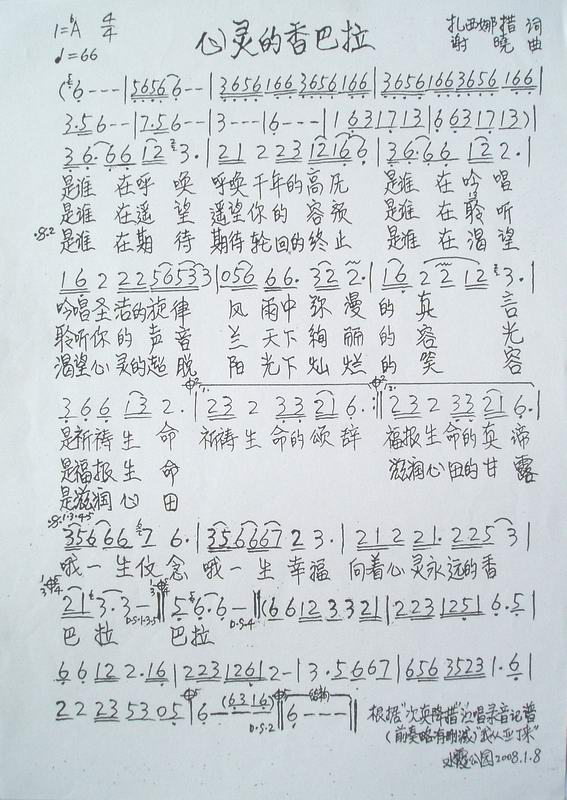 1=ᵇA 4/4
♩=66
心灵的香巴拉
扎西娜措 词
谢 晓 曲
(6 - - - | 5656 6 - - | 3656166 3656166 | 3656166 3656 166 |
3·5 6 - - | 7·5 6 - - | 3 - - - | 6 - - - | 1 6 3 1 7 1 3 | 6 6 3 1 7 1 3) |
3 6· 6 6 12 3· | 21 2 23 12166 | 3 6· 6 6 12 2· |
是谁 在呼 唤 呼唤千年的高原 是谁 在吟 唱
是谁 在遥 望 遥望你的 容颜 是谁 在聆 听
是谁 在期 待 期待轮回的终止 是谁 在渴 望
16 2 22 56533 | 056 66· 32 2· | 16 2 2 12 3· |
吟唱圣洁的旋律 风 雨中 弥 漫 的 真 言
聆听你的 声 音 兰 天下 绚 丽 的 容 光
渴望心灵的超 脱 阳 光下 灿 烂 的 笑 容
3 6 6 13 2· | 23 2 33 21 6· :| 23 2 33 21 6· |
是祈祷 生 命 祈祷生 命的颂 辞 福报生命的真 谛
是福报 生 命 滋润心田的甘 露
是滋润 心 田
356 66 7 6· | 3566667 2 3· | 21 2 21· 225 3 |
哦一 生仅 念 哦一 生 幸福 向着心灵永远的香
21 3·3 - || 5 6·6 - || (66 12 3321 | 223 1251 6·5 |
巴 拉 巴拉
D.S.1.3.5
D.S.4
66 122·16 | 223 1261 2 - | 3·5667 | 656 3523 1·6 |
22 23 53 05 | 6 - (6316) || 6 - - - ||
D.S.2
根据“次真降措”演唱录音记谱
(前奏略有删减)
公园2008.1.8